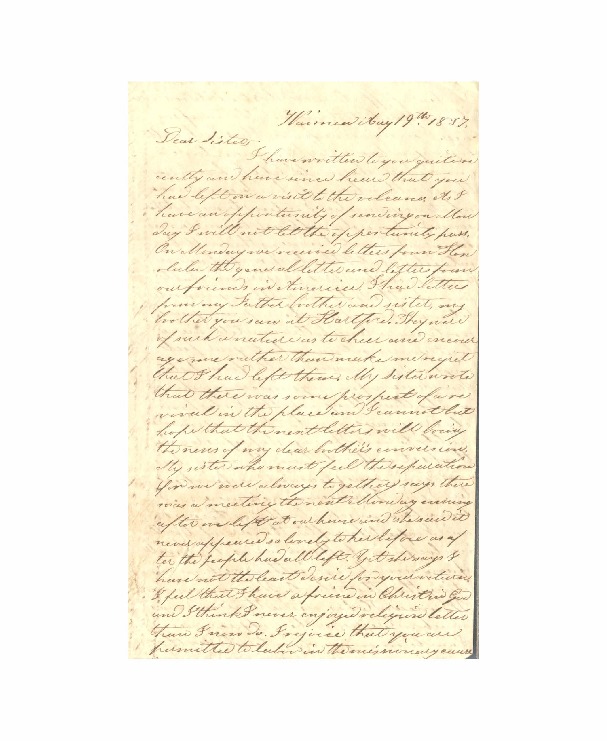 Waimea Aug 19th 1837.
Dear Sister
I have written to you quite re
cently and have since heard that you
had left on a visit to the volcano. As I
have an opportunity of sending on Mon
day I will not let the opportunity pass.
On Monday we received letters from Hon
olulu the general letter and letters from
our friends in America. I had letters
from my Father brother and sister, my
brother you saw at Hartford. They were
of such a nature as to cheer and encour
age me rather than make me regret
that I had left them. My sister wrote
that there was some prospect of a re
vival in the place and I cannot but
hope that the next letters will bring
the news of my dear brother's conversion.
My sister who must feel the separation
for we were always together, says there
was a meeting the next Monday evening
after we left at our house and she said it
never appeared so lonely to her before as af
ter the people had all left. Yet she says I
have not the least desire for your return
I feel that I have a friend in Christ in God
and I think I never enjoyed religion better
than I now do. I rejoice that you are
permitted to labor in the missionary cause